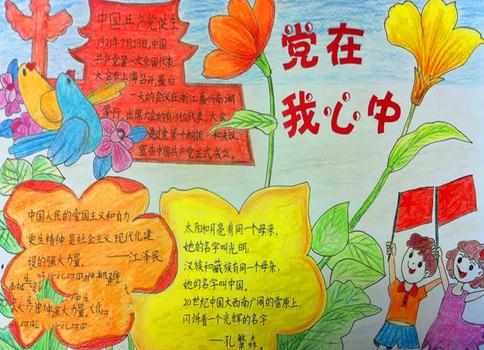 党在
我心中
中国共产党诞生
1921年7月23日,中国
共产党第一次全国代表
大会在上海召开,最后
一天的会议在浙江嘉兴南湖
举行。出席大会的有13位代表,大会
宣布中国共产党正式成立。
中国人民的爱国主义和自力
更生精神是社会主义现代化建
设的强大力量。
——江泽民
太阳和月亮有同一个母亲,
她的名字叫光明。
汉族和藏族有同一个母亲,
她的名字叫中国。
20世纪中国大西南广阔的雪原上
闪烁着一个光辉的名字
——孔繁森。